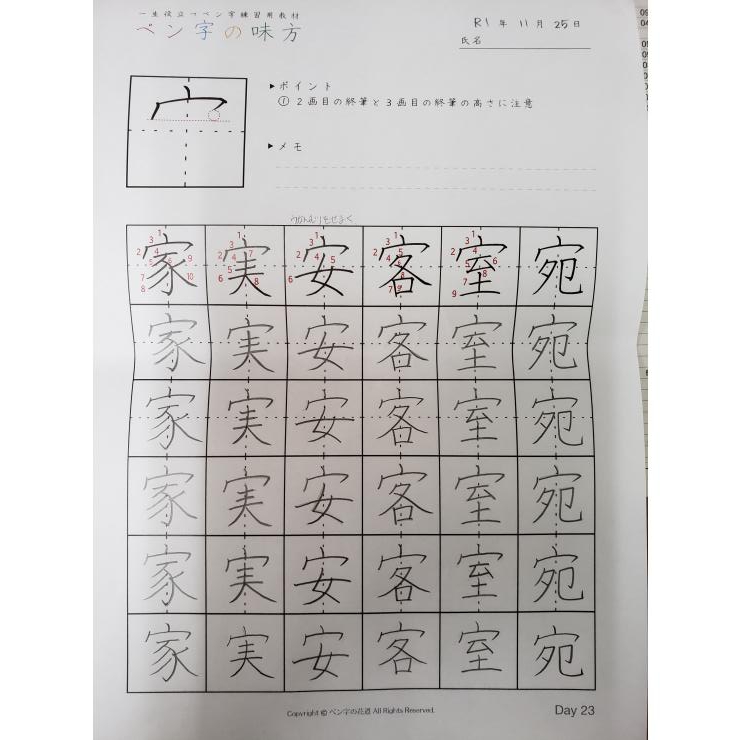 一生役立つペン字練習用教材
ペン字の味方
R1年11月25日
氏名
▶ポイント
① 2画目の終筆と3画目の終筆の高さに注意
▶メモ
家 実 安 客 室 宛
家 実 安 客 室 宛
家 実 安 客 室 宛
家 実 安 客 室 宛
家 実 安 客 室 宛
家 実 安 客 室 宛
Copyright © ペン字の花道 All Rights Reserved.
Day 23